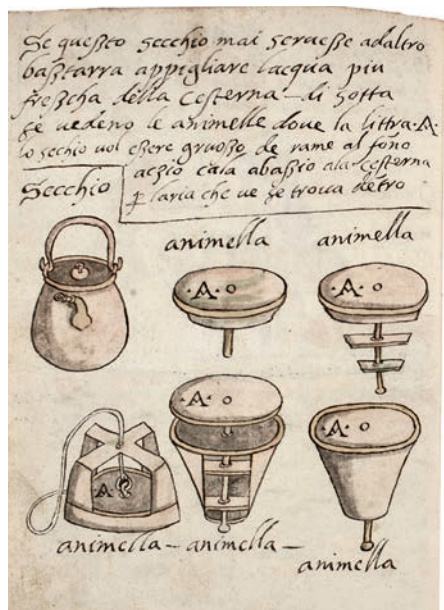 Se questo secchio mai seruesse adaltro
bastarra appigliare lacqua piu
frescha della Cesterna – di sotta
se uedeno le animelle doue la littra .A.
lo sechio uol essere gruosso de rame al fono
acsio cala abassio ala Cesterna
ꝑ laria che ue se troua dẽtro
Secchio
animella
animella
.A.
.A.
A
.A.
.A.
animella – animella –
animella